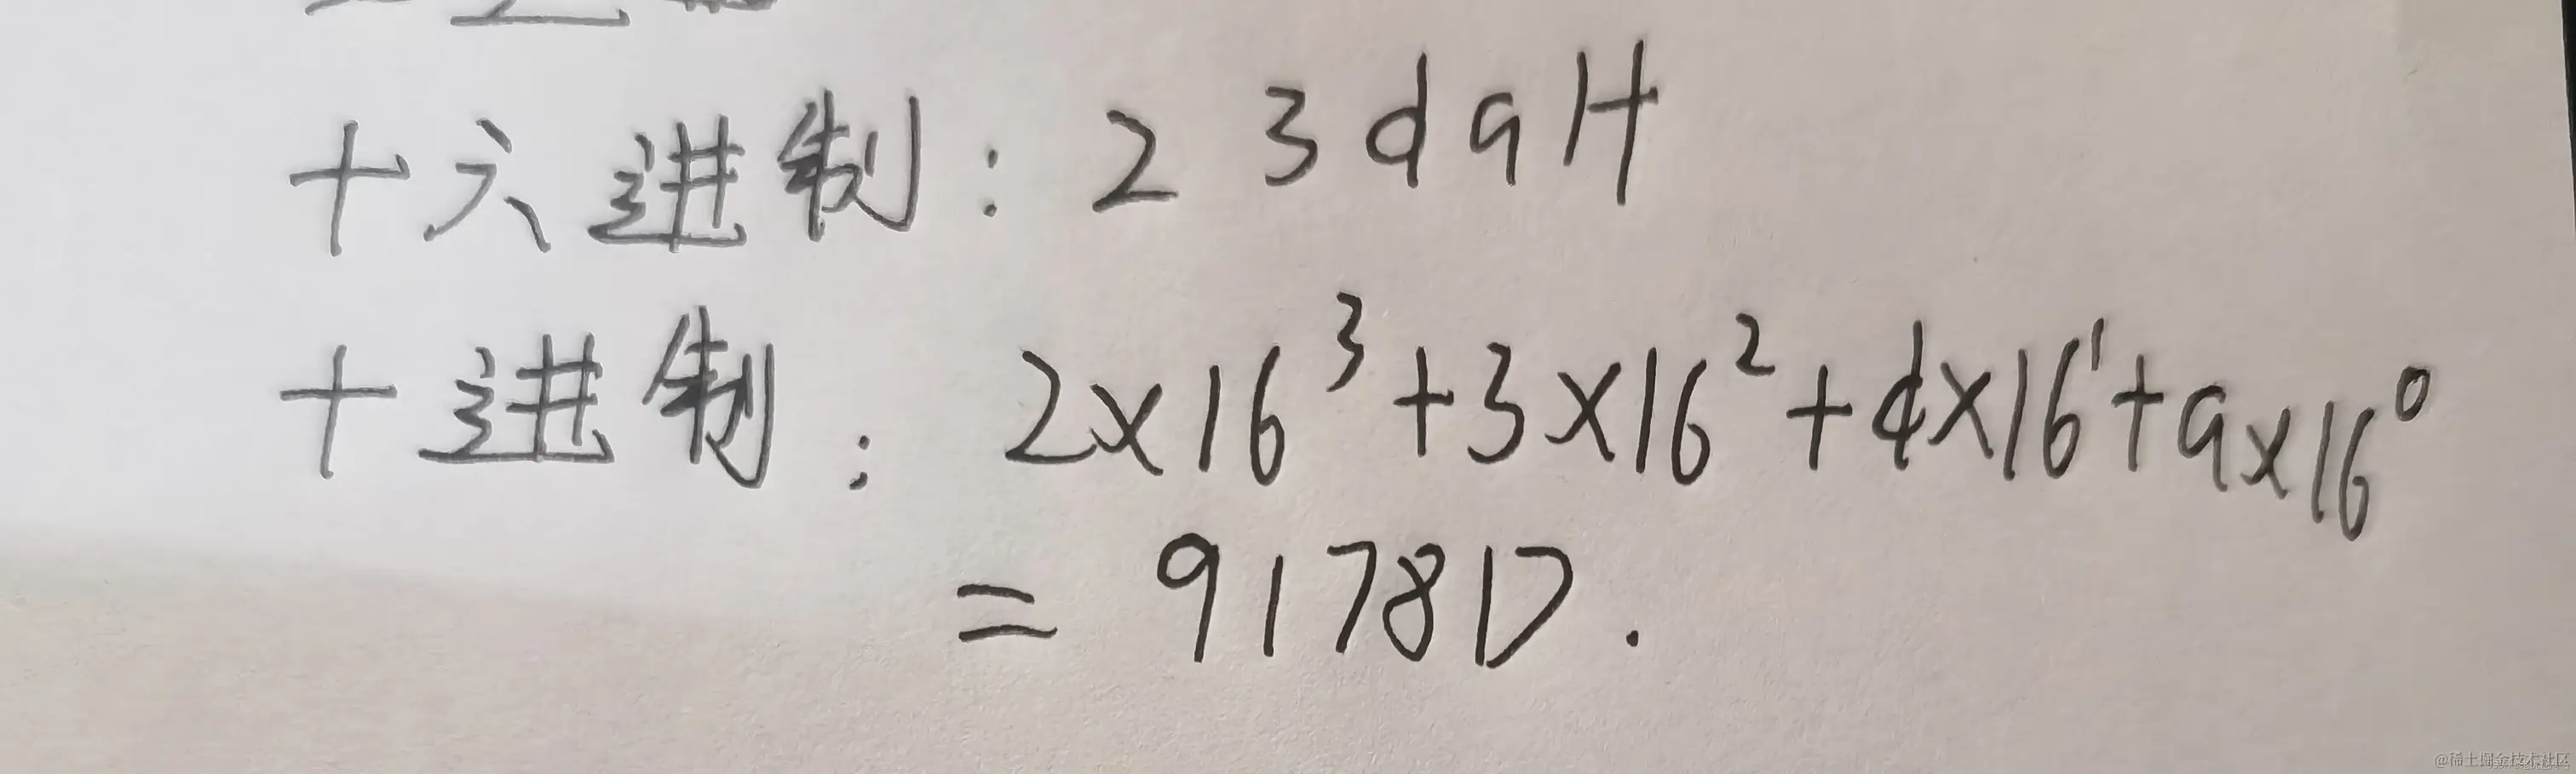 十六进制：23daH
十进制：2×16³+3×16²+d×16¹+a×16⁰
=9178D.
@稀土掘金技术社区